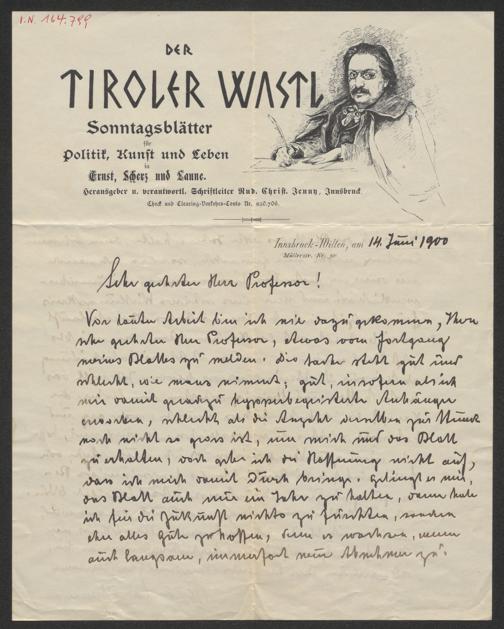 I.N. 164.799
DER
TIROLER WASTL
Sonntagsblätter
für
Politik, Kunst und Leben
in
Ernst, Scherz und Laune.
Herausgeber u. verantwortl. Schriftleiter Rud. Christ. Jenny, Innsbruck
Check und Clearing-Verkehrs-Conto Nr. 828.706.
Innsbruck-Wilten, am 14. Juni 1900
Müllerstr. Nr.
Sehr geehrter Herr Professor!
Vor lauter Arbeit bin ich nie dazu gekommen, Ihnen
sehr geehrter Herr Professor, etwas vom Fortgang
meines Blattes zu melden. Die Sache steht gut und
schlecht, wie mans nimmt; gut, insofern als ich
mir damit geradezu begeisterte Anhänger
erworben, schlecht als die Anzahl derselben zur Stunde
noch nicht so gross ist, um mich und das Blatt
zu erhalten, doch gebe ich die Hoffnung nicht auf,
dass ich mich damit durch bringe. Gelingt es mir,
das Blatt auch nur ein Jahr zu halten, dann habe
ich für die Zukunft nichts zu fürchten, sondern
eher alles Gute zu hoffen, denn es wachsen, wenn
auch langsam, immerfort neue Abnehmer zu.